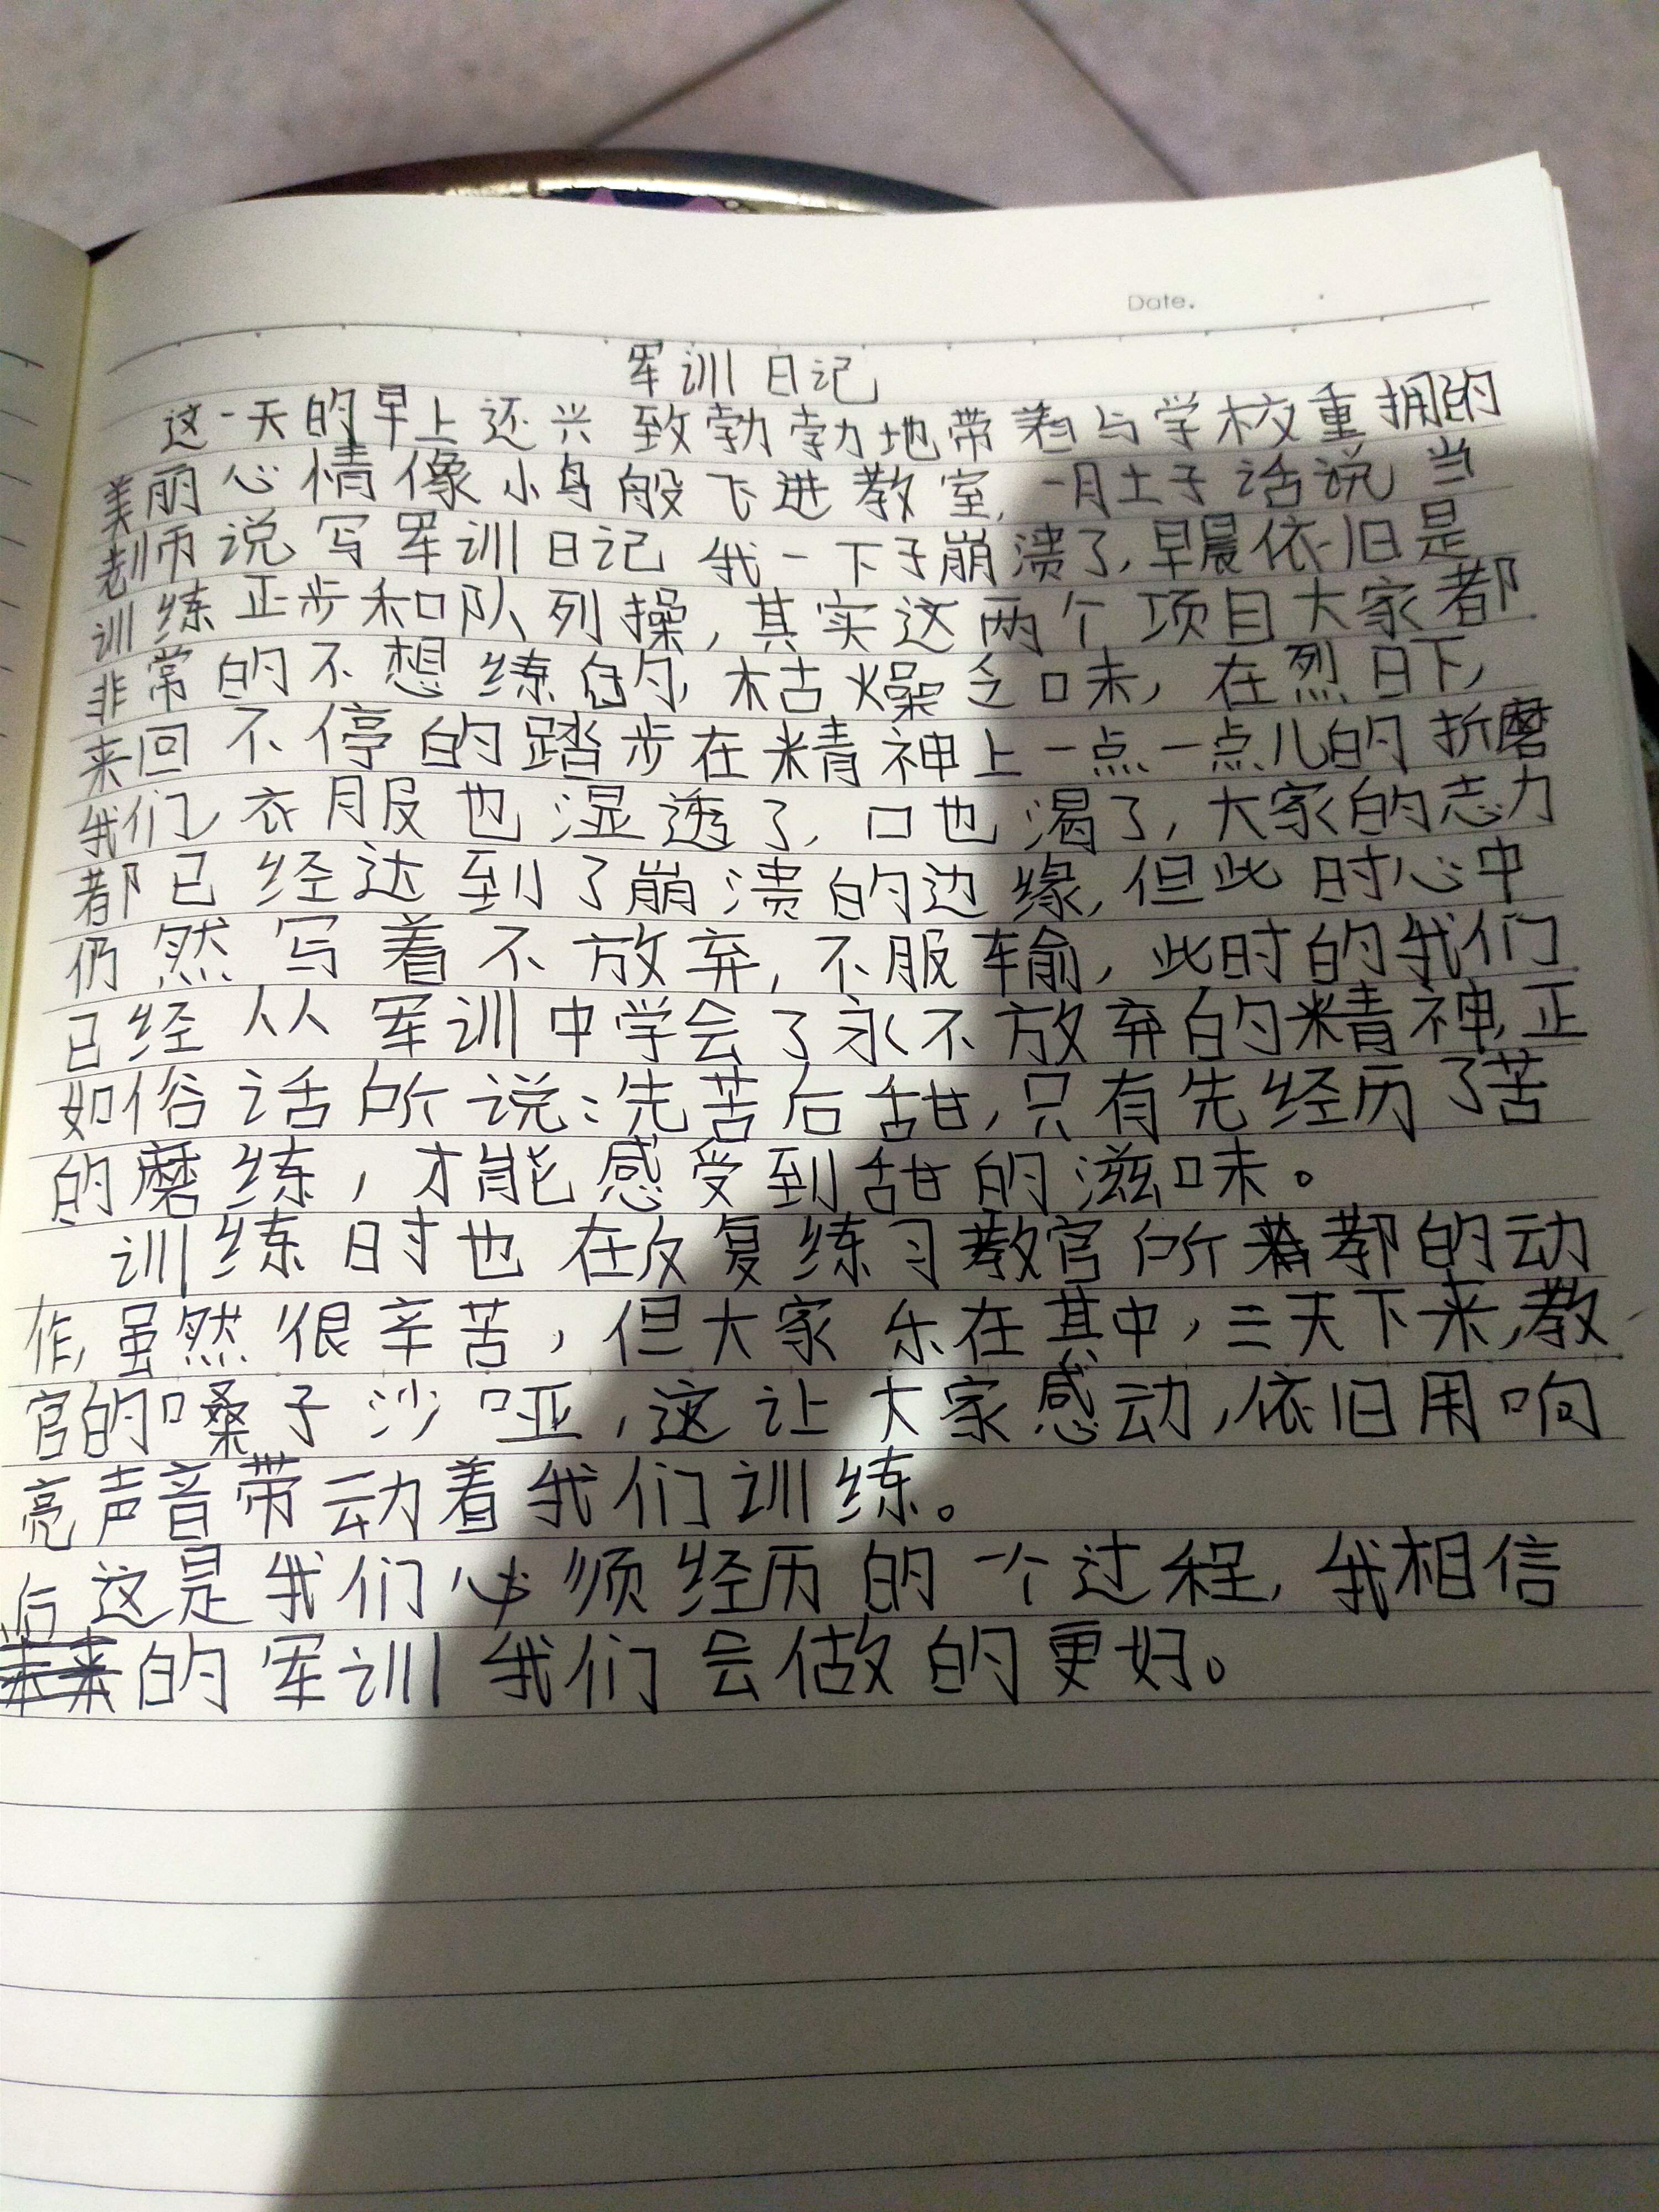 Date.
军训日记
这一天的早上还兴致勃勃地带着与学校重拥的
美丽心情像小鸟般飞进教室,一肚子话说 当
老师说写军训日记 我一下子崩溃了,早晨依旧是
训练正步和队列操,其实这两个项目大家都
非常的不想练的,枯燥乏味,在烈日下,
来回不停的踏步在精神上一点一点儿的折磨
我们,衣服也湿透了,口也渴了,大家的志力
都已经达到了崩溃的边缘,但此时心中
仍然写着不放弃,不服输,此时的我们
已经从军训中学会了永不放弃的精神,正
如俗话所说:先苦后甜,只有先经历了苦
的磨练,才能感受到甜的滋味。
训练时也在反复练习教官所教的动
作,虽然很辛苦,但大家乐在其中,三天下来,教
官的嗓子沙哑,这让大家感动,依旧用响
亮声音带动着我们训练。
这是我们必须经历的一个过程,我相信
后的军训我们会做的更好。